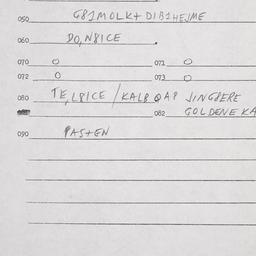 050 G81MOLK+ DIB1HEJME
060 DO,N8ICE
070 O 071 O
072 O 073 O
080 TE,L8ICE / KALB QAP JINGBERE
082 GOLDENE KA
090 PAS+EN